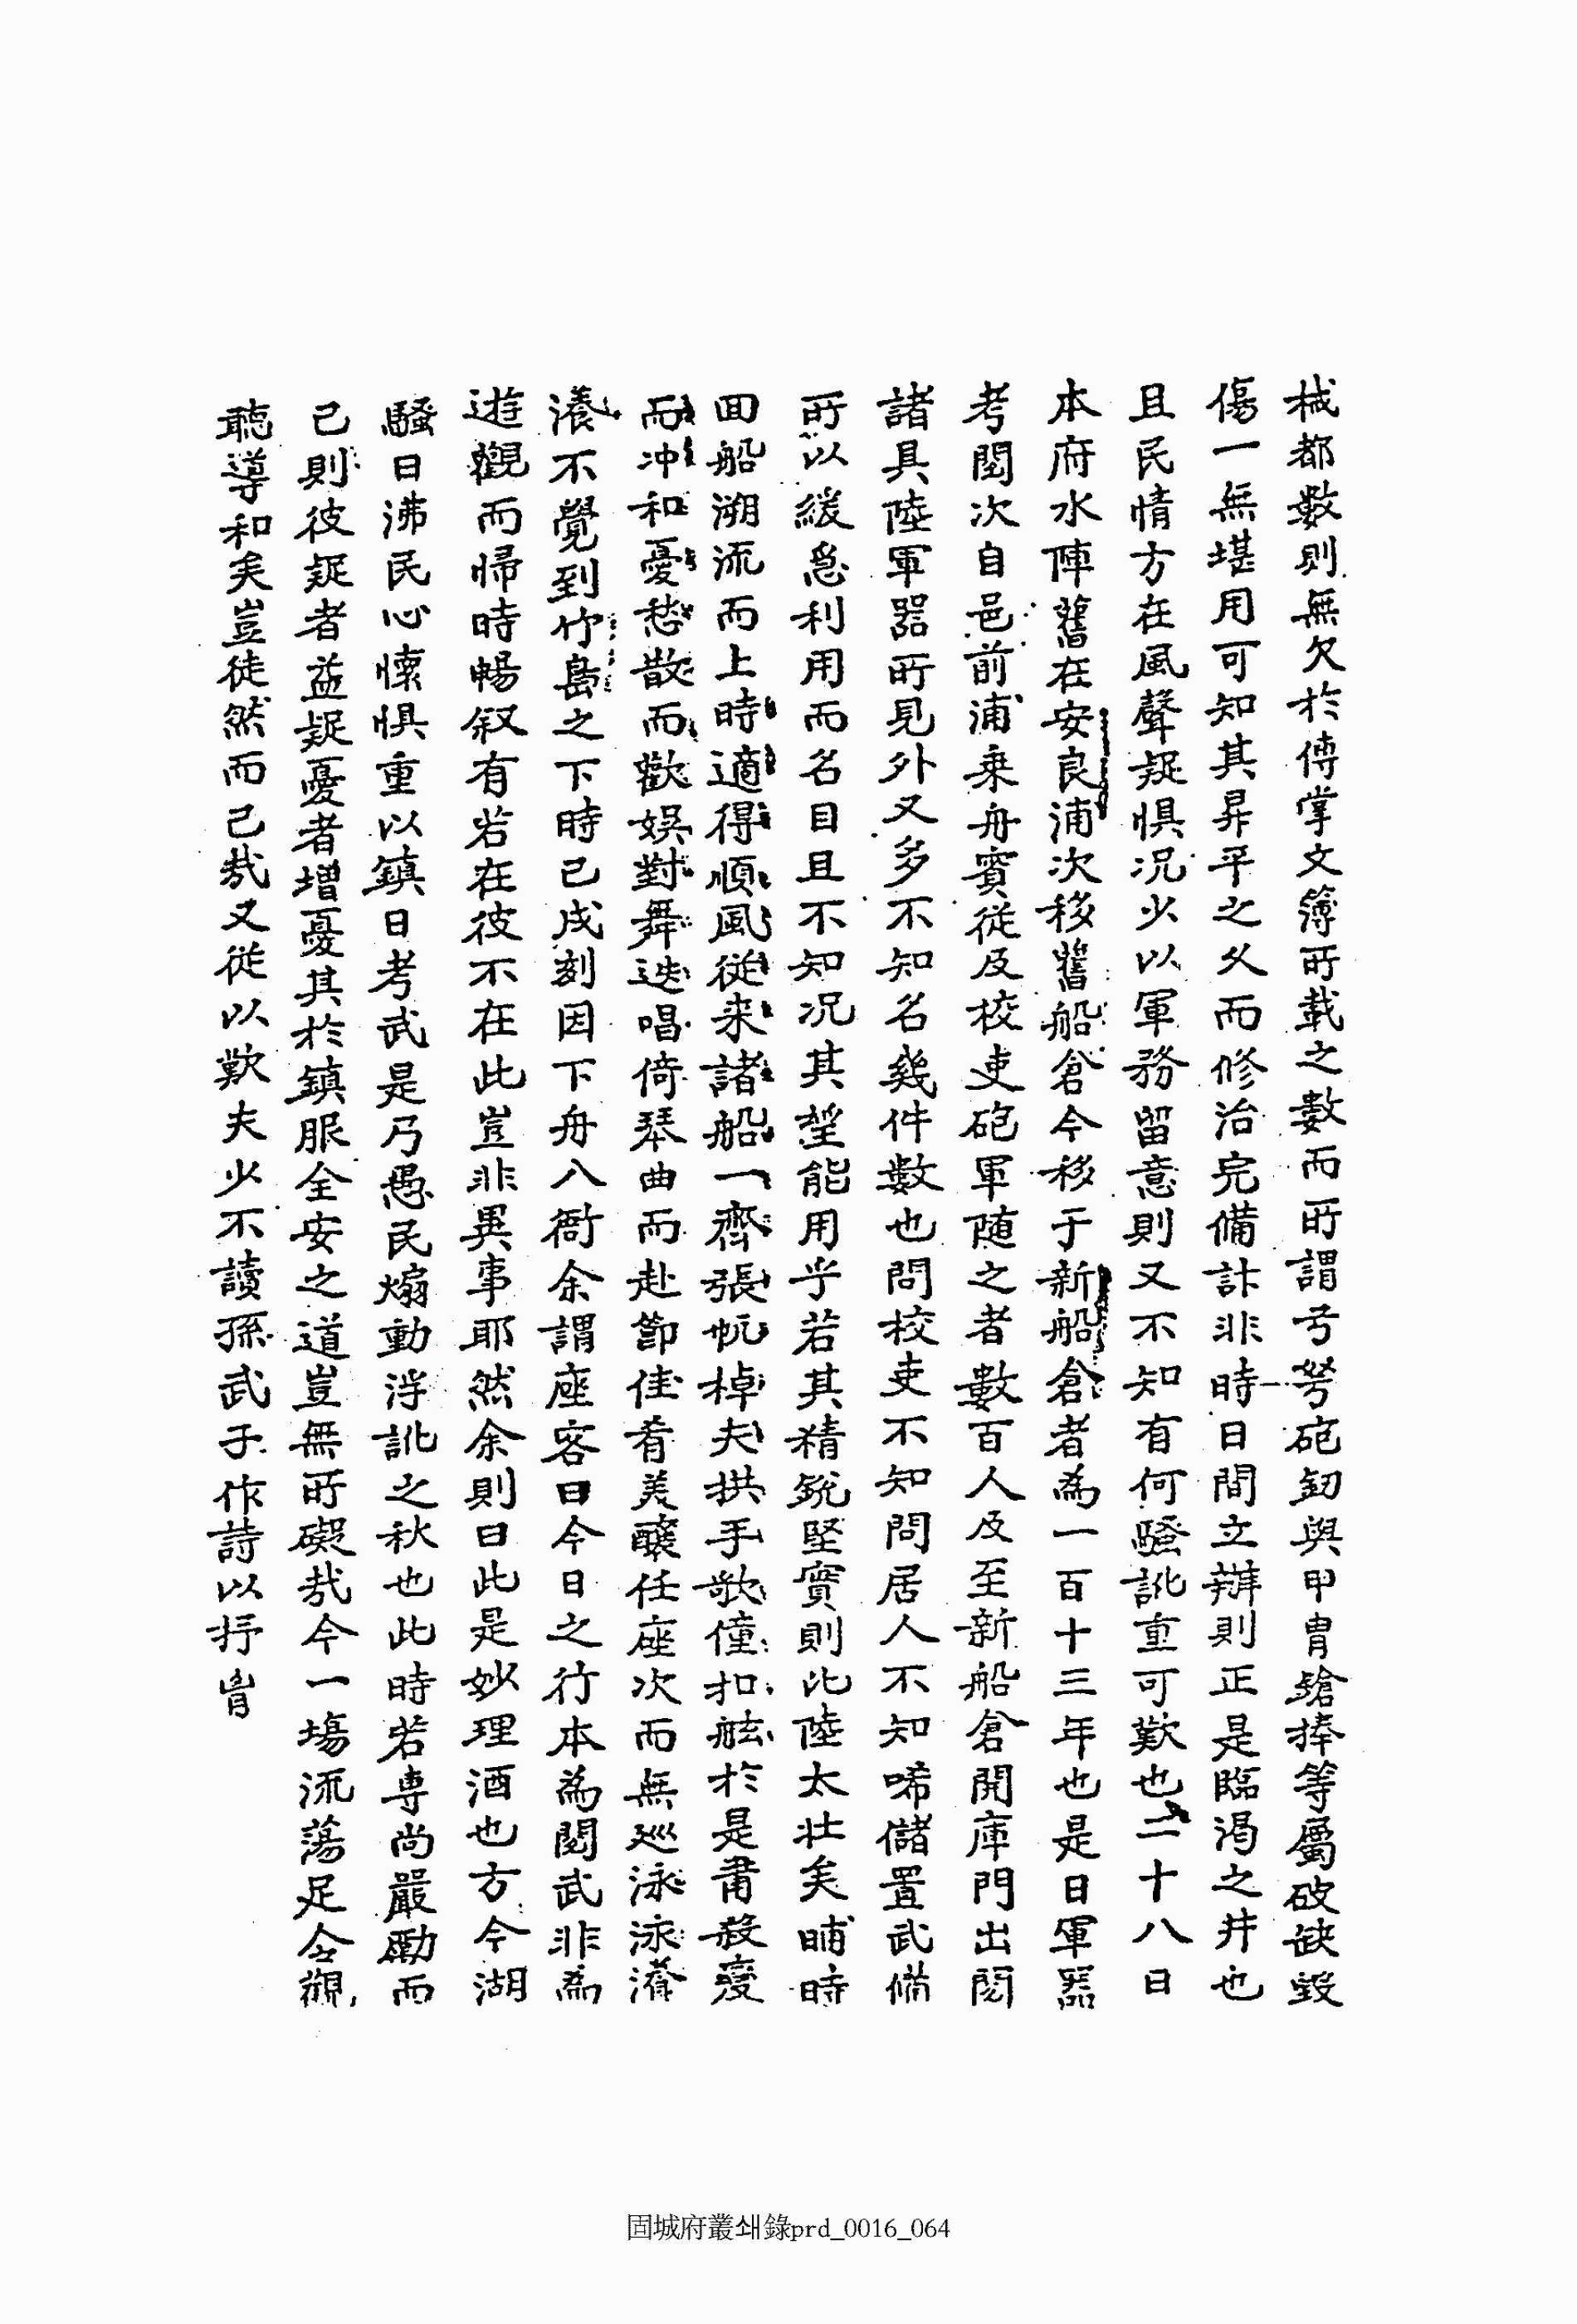 械都數則無欠於傳掌文簿所載之數而所謂弓弩砲釰與甲冑鎗捧等屬破缺毀
傷一無堪用可知其昇平之久而修治完備計非時日間立辦則正是臨渴之井也
且民情方在風聲疑惧况少以軍務留意則又不知有何騷訛重可歎也二十八日
本府水陣舊在安良浦次移舊船倉今移于新船倉者爲一百十三年也是日軍器
考閱次自邑前浦乗舟賓從及校吏砲軍随之者數百人及至新船倉開庫門出閱
諸具陸軍器所見外又多不知名幾件數也問校吏不知問居人不知唏儲置武備
所以緩急利用而名目且不知况其望能用乎若其精銳堅實則比陸太壮矣晡時
回船溯流而上時適得順風從来諸船一齊張帆棹夫拱手歌僮扣舷於是肅殺變
而冲和憂愁散而歡娛對舞迭唱倚琴曲而赴節佳肴美釀任座次而無巡泳泳瀁
瀁不覺到竹島之下時已戌刻因下舟入衙余謂座客曰今日之行本爲閱武非爲
遊觀而帰時暢叙有若在彼不在此豈非異事耶然余則曰此是妙理酒也方今湖
騷日沸民心懷惧重以鎮日考武是乃愚民煽動浮訛之秋也此時若専尚嚴勵而
已則彼疑者益疑憂者增憂其於鎮服全安之道豈無所礙哉今一塲流蕩足令觀
聽導和矣豈徒然而已哉又從以歎夫少不讀孫武子作詩以抒
固城府叢쇄錄prd_0016_064